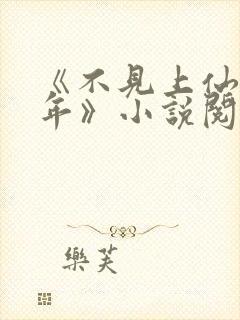 《不見上仙
年》小說閱
樂芙